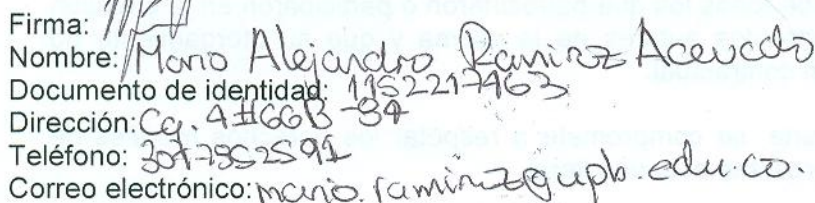 Firma:
Nombre: Mario Alejandro Ramirez Acevedo
Documento de identidad: 1152217463
Dirección: Cq. 4 #66B-94
Teléfono: 3017552591
Correo electrónico: mario.ramirez@upb.edu.co.